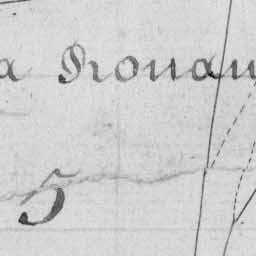 a Rouau
5